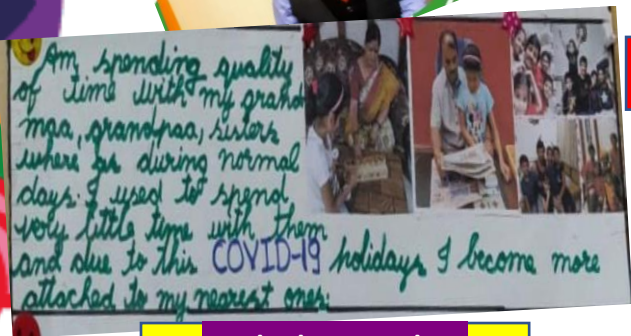 Am spending quality
of time with my grand
maa, grandpaa, sisters
where as during normal
days. I used to spend
very little time with them
and due to this COVID-19 holidays I become more
attached to my nearest ones.